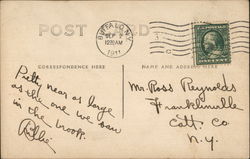 POST CARD
BUFFALO, N.Y.
SEP
12 30 AM
1911
CORRESPONDENCE HERE
NAME AND ADDRESS HERE
near as large
as the one we saw
in the brook.
Mr. Ross Reynolds
Franklinville
Catt. Co.
N.Y.